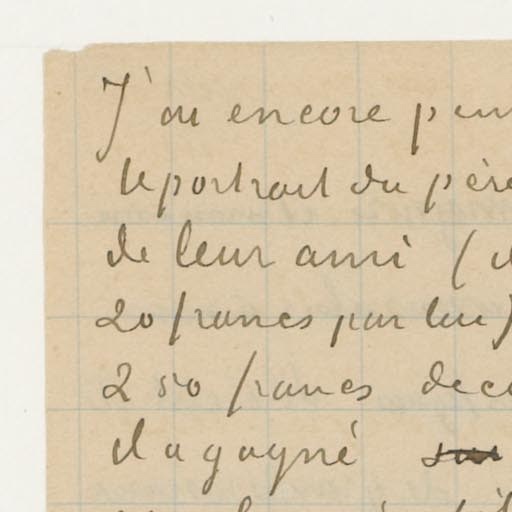 J'ai encore
le portrait du père
de leur ami (
20 francs par lui)
250 francs
Il a gagné